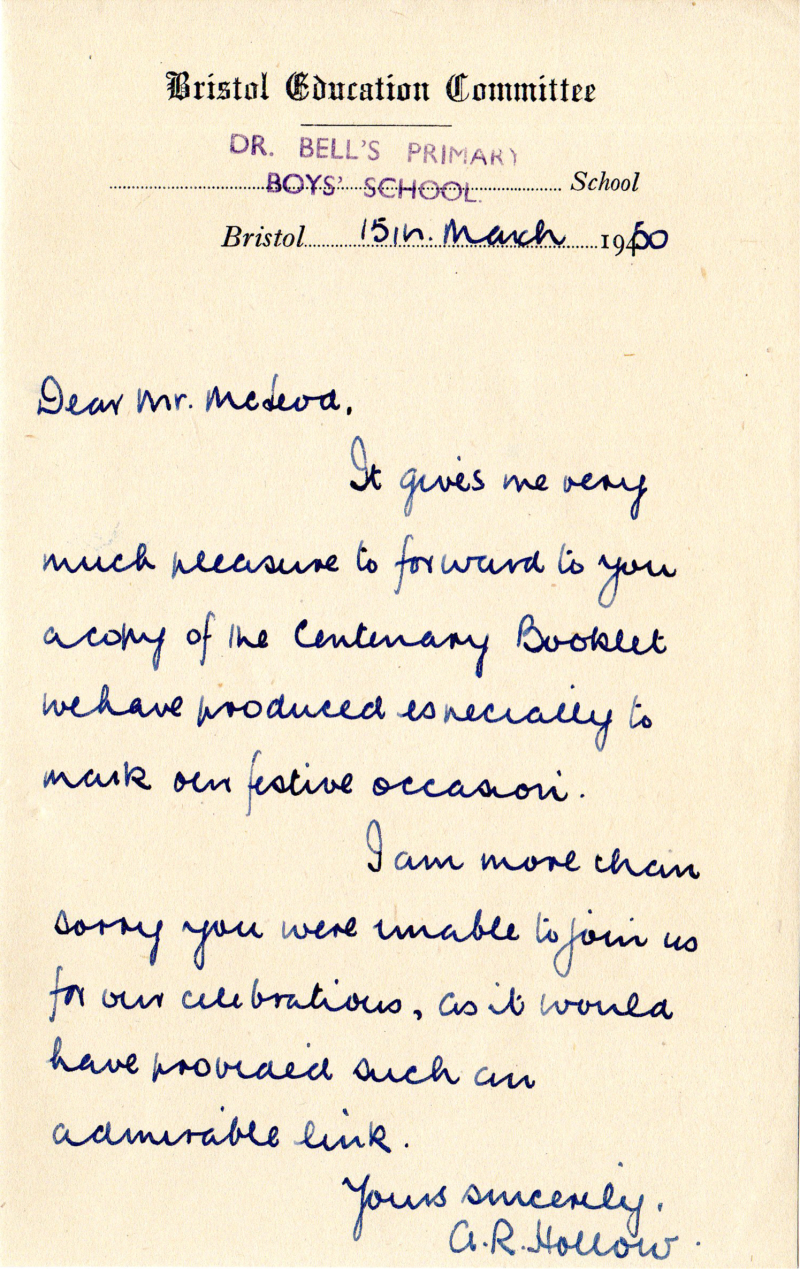 Bristol Education Committee
DR. BELL'S PRIMARY
BOYS' SCHOOL. School
Bristol 15th. March 1950
Dear Mr. McLeod,
It gives me very
much pleasure to forward to you
a copy of the Centenary Booklet
we have produced especially to
mark our festive occasion.
I am more than
sorry you were unable to join us
for our celebrations, as it would
have provided such an
admirable link.
Yours sincerely,
A.R. Hollow.